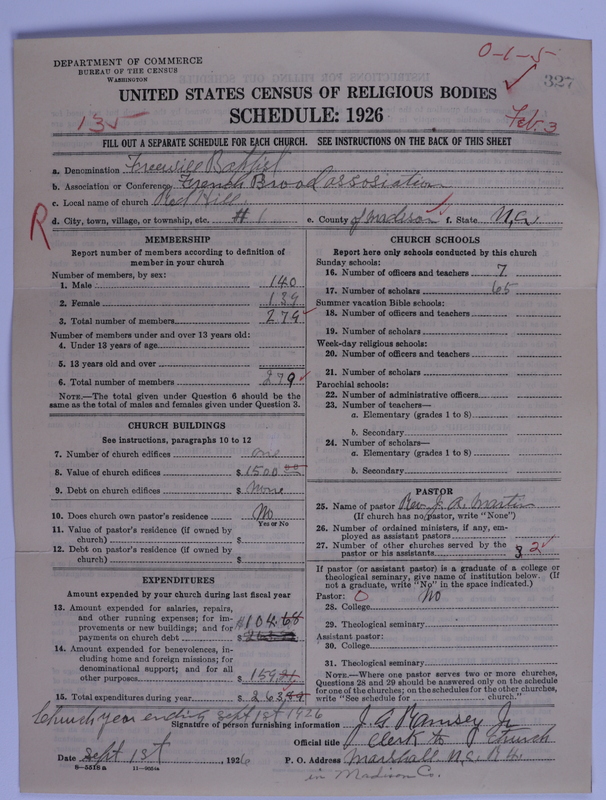 0-1-5
DEPARTMENT OF COMMERCE
BUREAU OF THE CENSUS
WASHINGTON
327
UNITED STATES CENSUS OF RELIGIOUS BODIES
135
SCHEDULE: 1926
Feb. 3
FILL OUT A SEPARATE SCHEDULE FOR EACH CHURCH. SEE INSTRUCTIONS ON THE BACK OF THIS SHEET
a. Denomination Freewill Baptist
b. Association or Conference French Broad assosiation
c. Local name of church Red Hill
R
d. City, town, village, or township, etc. #1 e. County of Madison f. State N.C.
MEMBERSHIP
Report number of members according to definition of
member in your church
Number of members, by sex:
1. Male 140
2. Female 139
3. Total number of members 279
Number of members under and over 13 years old:
4. Under 13 years of age
5. 13 years old and over
6. Total number of members 279
NOTE.—The total given under Question 6 should be the
same as the total of males and females given under Question 3.
CHURCH BUILDINGS
See instructions, paragraphs 10 to 12
7. Number of church edifices one
8. Value of church edifices $ 1500 00
9. Debt on church edifices $ None
10. Does church own pastor's residence No
Yes or No
11. Value of pastor's residence (if owned by
church) $
12. Debt on pastor's residence (if owned by
church) $
EXPENDITURES
Amount expended by your church during last fiscal year
13. Amount expended for salaries, repairs,
and other running expenses; for im-
provements or new buildings; and for
payments on church debt $ 104.68
14. Amount expended for benevolences, in-
cluding home and foreign missions; for
denominational support; and for all
other purposes $ 159
15. Total expenditures during year $ 263
CHURCH SCHOOLS
Report here only schools conducted by this church
Sunday schools:
16. Number of officers and teachers 7
17. Number of scholars 65
Summer vacation Bible schools:
18. Number of officers and teachers
19. Number of scholars
Week-day religious schools:
20. Number of officers and teachers
21. Number of scholars
Parochial schools:
22. Number of administrative officers
23. Number of teachers—
a. Elementary (grades 1 to 8)
b. Secondary
24. Number of scholars—
a. Elementary (grades 1 to 8)
b. Secondary
PASTOR
25. Name of pastor Rev. J. R. Martin
(If church has no pastor, write "None")
26. Number of ordained ministers, if any, em-
ployed as assistant pastors
27. Number of other churches served by the
pastor or his assistants 3 2
If pastor (or assistant pastor) is a graduate of a college or
theological seminary, give name of institution below. (If
not a graduate, write "No" in the space indicated.)
Pastor: 0 No
28. College
29. Theological seminary
Assistant pastor:
30. College
31. Theological seminary
NOTE.—Where one pastor serves two or more churches,
Questions 28 and 29 should be answered only on the schedule
for one of the churches; on the schedules for the other churches,
write "See schedule for church."
Church year ending Sept 1st 1926
Signature of person furnishing information J. G. Ramsey Jr
Official title Clerk to Church
Date Sept 1st, 1926 P. O. Address Marshall N.C. R #4
8-5518a 11-9004a
in Madison Co.